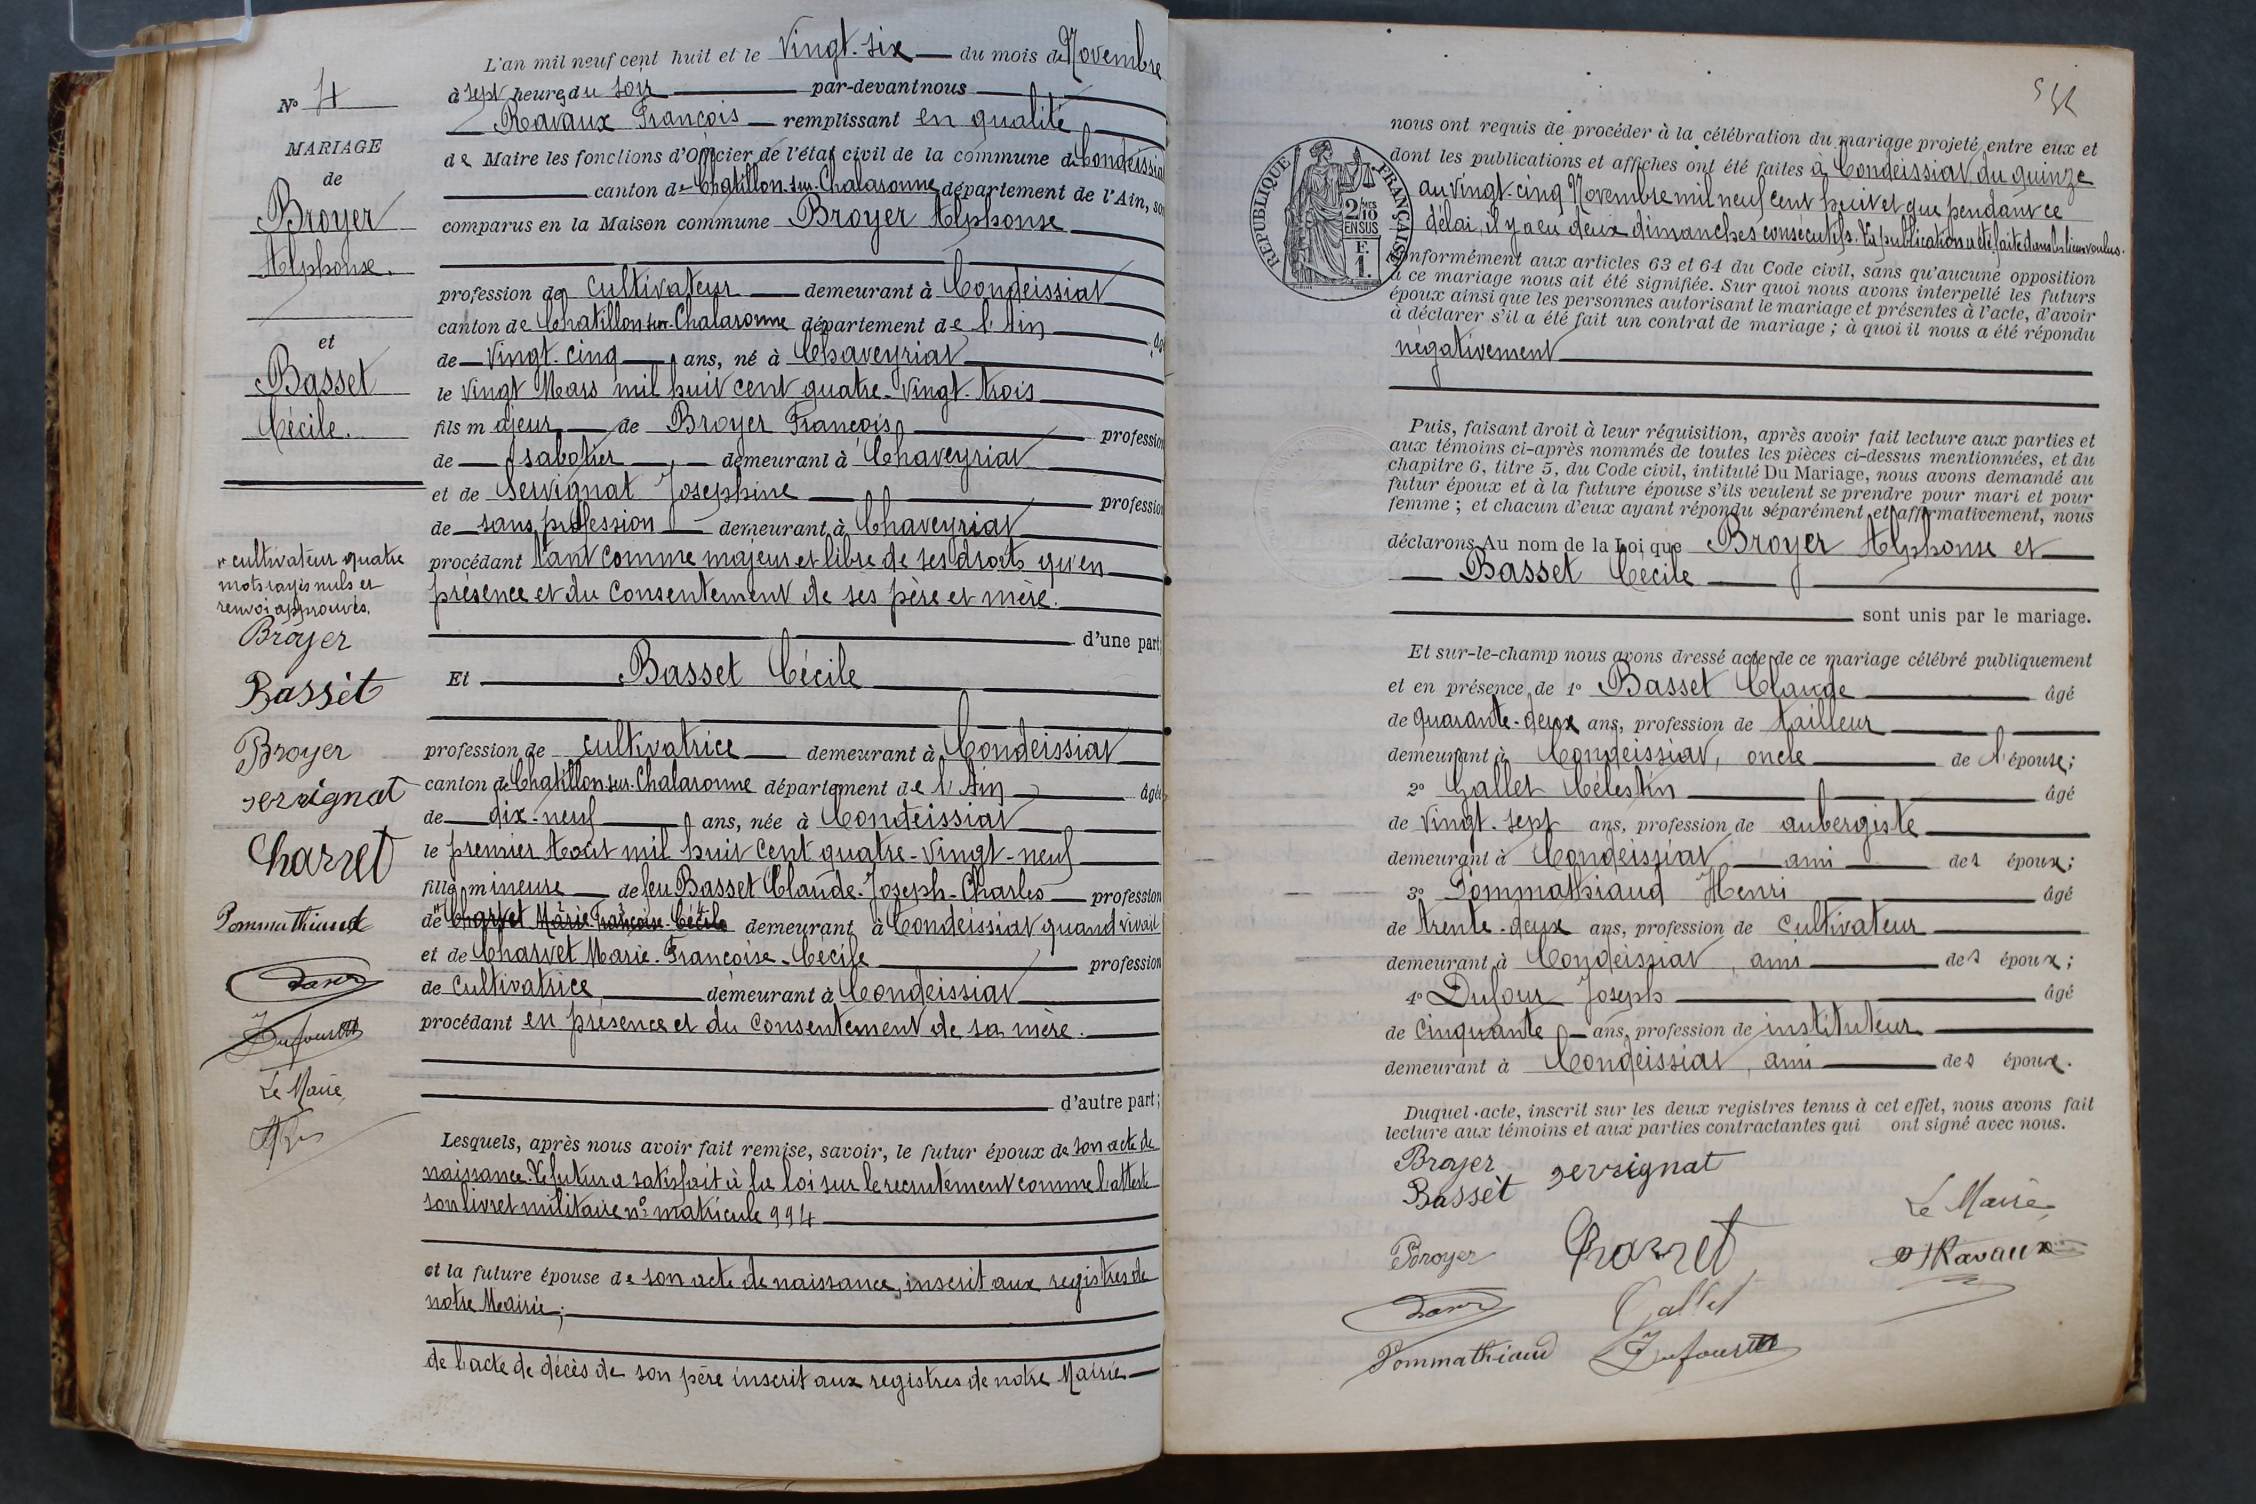 L'an mil neuf cent huit et le vingt-six du mois de Novembre
à sept heures du soir par-devant nous
Ravaux François remplissant en qualité
de Maire les fonctions d'Officier de l'état civil de la commune de Condeissiat
canton de Chatillon-sur-Chalaronne département de l'Ain, so
comparus en la Maison commune Broyer Alphonse
profession de cultivateur demeurant à Condeissiat
canton de Chatillon sur-Chalaronne département de l'Ain âgé
de vingt-cinq ans, né à Chaveyriat
le vingt Mars mil huit cent quatre-vingt-trois
fils majeur de Broyer François profession
de sabotier demeurant à Chaveyriat
et de Servignat Joséphine profession
de sans profession demeurant à Chaveyriat
procédant tant comme majeur et libre de ses droits qu'en
présence et du consentement de ses père et mère.
d'une part;
Et Basset Cécile
profession de cultivatrice demeurant à Condeissiat
canton de Chatillon-sur-Chalaronne département de l'Ain âgée
de dix-neuf ans, née à Condeissiat
le premier Août mil huit cent quatre-vingt-neuf
fille mineure de feu Basset Claude-Joseph-Charles profession
de Charvet Marie-Françoise-Cécile demeurant à Condeissiat quand vivait
et de Charvet Marie-Françoise-Cécile profession
de cultivatrice demeurant à Condeissiat
procédant en présence et du consentement de sa mère.
d'autre part;
Lesquels, après nous avoir fait remise, savoir, le futur époux de son acte de
naissance. Le futur a satisfait à la loi sur le recrutement comme l'atteste
son livret militaire no matricule 994
et la future épouse de son acte de naissance, inscrit aux registres de
notre Mairie;
de l'acte de décès de son père inscrit aux registres de notre Mairie
No 4
MARIAGE
de
Broyer
Alphonse.
et
Basset
Cécile.
cultivateur quatre
mots rayés nuls et
renvoi approuvés.
Broyer
Basset
Broyer
servignat
Charvet
Pommathiaud
Dufour
Le Maire
nous ont requis de procéder à la célébration du mariage projeté entre eux et
dont les publications et affiches ont été faites à Condeissiat du quinze
au vingt-cinq Novembre mil neuf cent huit et que pendant ce
délai, il y a eu deux dimanches consécutifs. La publication a été faite dans les lieux voulus.
conformément aux articles 63 et 64 du Code civil, sans qu'aucune opposition
à ce mariage nous ait été signifiée. Sur quoi nous avons interpellé les futurs
époux ainsi que les personnes autorisant le mariage et présentes à l'acte, d'avoir
à déclarer s'il a été fait un contrat de mariage; à quoi il nous a été répondu
négativement
RÉPUBLIQUE FRANÇAISE
2/10 EN SUS
F. 1.
Puis, faisant droit à leur réquisition, après avoir fait lecture aux parties et
aux témoins ci-après nommés de toutes les pièces ci-dessus mentionnées, et du
chapitre 6, titre 5, du Code civil, intitulé Du Mariage, nous avons demandé au
futur époux et à la future épouse s'ils veulent se prendre pour mari et pour
femme; et chacun d'eux ayant répondu séparément et affirmativement, nous
déclarons Au nom de la Loi que Broyer Alphonse et
Basset Cécile
sont unis par le mariage.
Et sur-le-champ nous avons dressé acte de ce mariage célébré publiquement
et en présence de 1o Basset Claude âgé
de quarante-deux ans, profession de tailleur
demeurant à Condeissiat, oncle de l'épouse;
2o Gallet Célestin âgé
de vingt-sept ans, profession de aubergiste
demeurant à Condeissiat ami des époux;
3o Pommathiaud Henri âgé
de trente-deux ans, profession de cultivateur
demeurant à Condeissiat, ami des époux;
4o Dufour Joseph âgé
de cinquante ans, profession de instituteur
demeurant à Condeissiat, ami des époux.
Duquel acte, inscrit sur les deux registres tenus à cet effet, nous avons fait
lecture aux témoins et aux parties contractantes qui ont signé avec nous.
Broyer servignat
Basset
Le Maire,
Broyer Charvet
Ravaux
Gallet
Pommathiaud Dufour